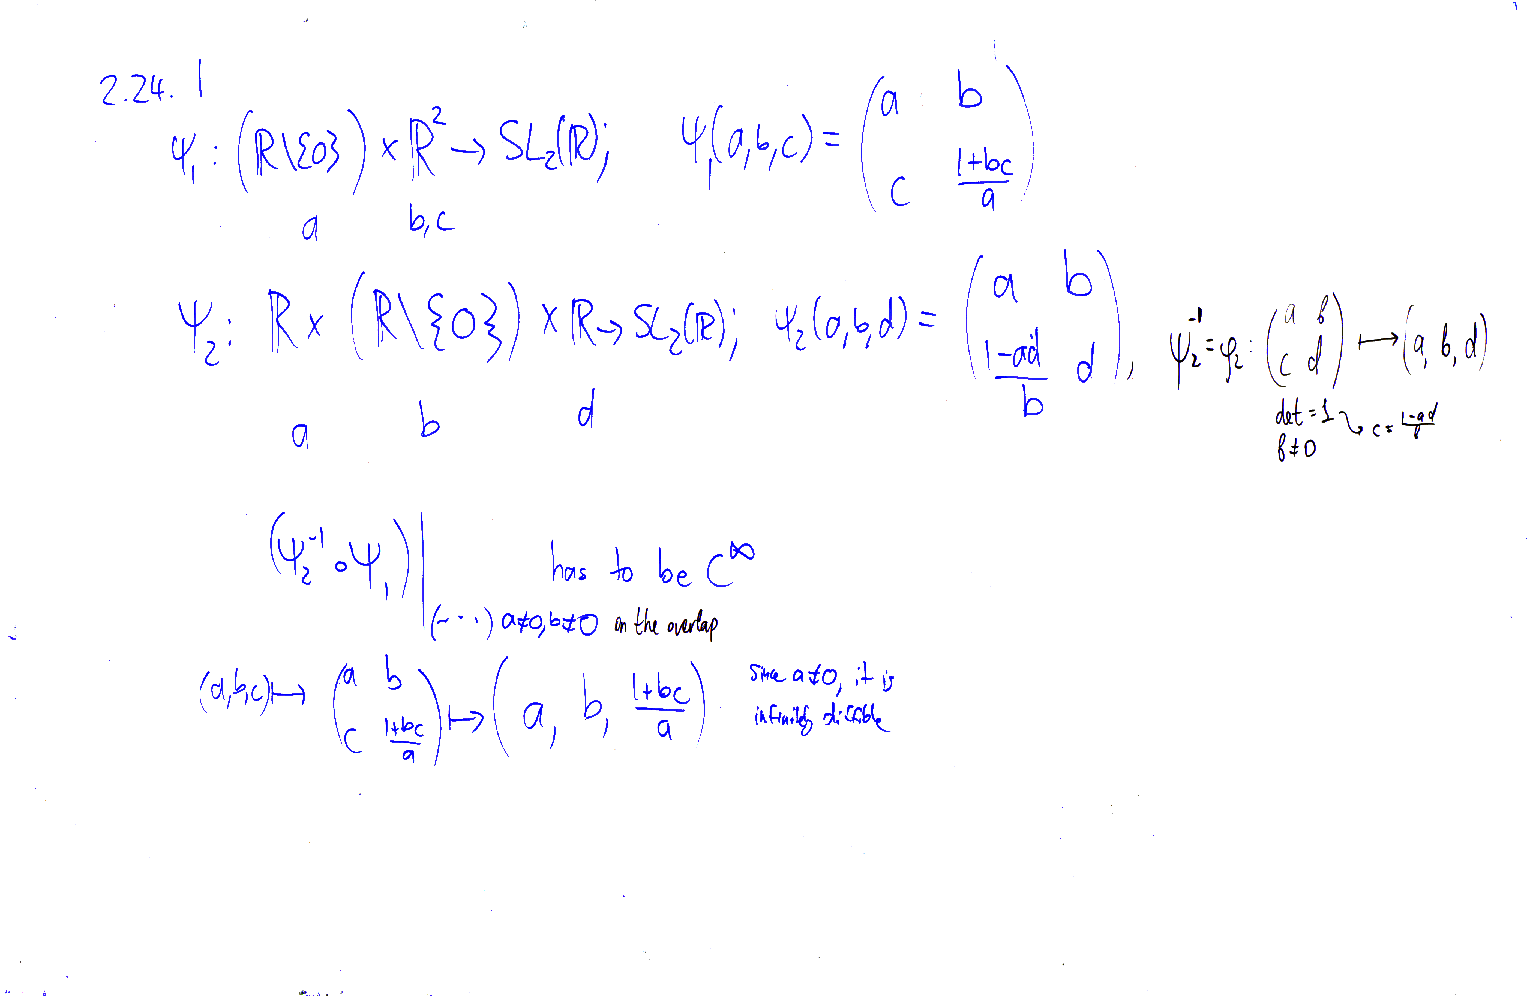 2.24. 1
Ψ₁ : (ℝ\{0}) × ℝ² → SL₂(ℝ); Ψ₁(a,b,c) = (a b / c (1+bc)/a)
a b,c
Ψ₂ : ℝ × (ℝ\{0}) × ℝ → SL₂(ℝ); Ψ₂(a,b,d) = (a b / (1-ad)/b d), Ψ₂⁻¹ = φ₂ : (a b / c d) ↦ (a, b, d)
a b d
det = 1 ↝ c = (1-ad)/b
b ≠ 0
(Ψ₂⁻¹ ∘ Ψ₁)| has to be C^∞
(....) a≠0, b≠0 on the overlap
(a,b,c) ↦ (a b / c (1+bc)/a) ↦ (a, b, (1+bc)/a) since a≠0, it is
infinitely diffble